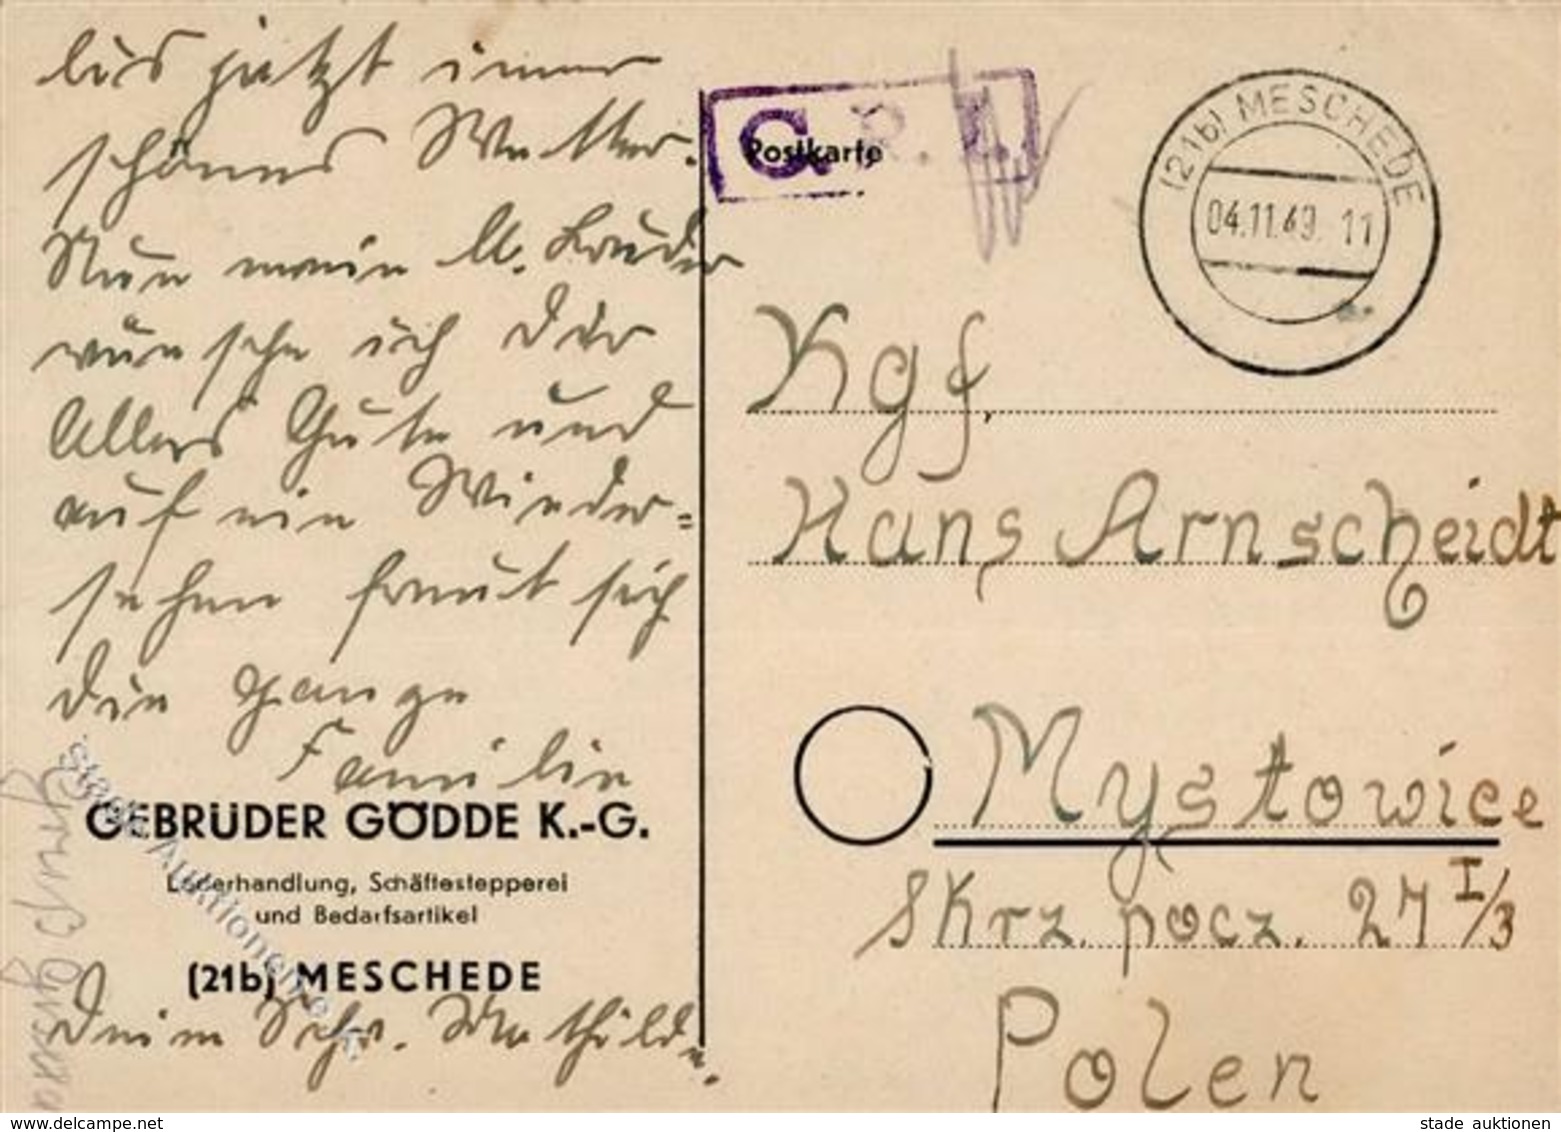 bis jetzt immer
schönes Wetter.
Nun mein lb. Bruder
wünsche ich Dir
Alles Gute und
auf ein Wieder=
sehen freut sich
die ganze
Familie
GEBRÜDER GÖDDE K.-G.
Lederhandlung, Schäftestepperei
und Bedarfsartikel
(21b) MESCHEDE
Deine Schw. Mathilde.
Postkarte
(21b) MESCHEDE
04.11.49. 11
Kgf.
Hans Arnscheidt
Mystowice
Skrz. pocz. 27 I/3
Polen
www.delcampe.net
stade auktionen